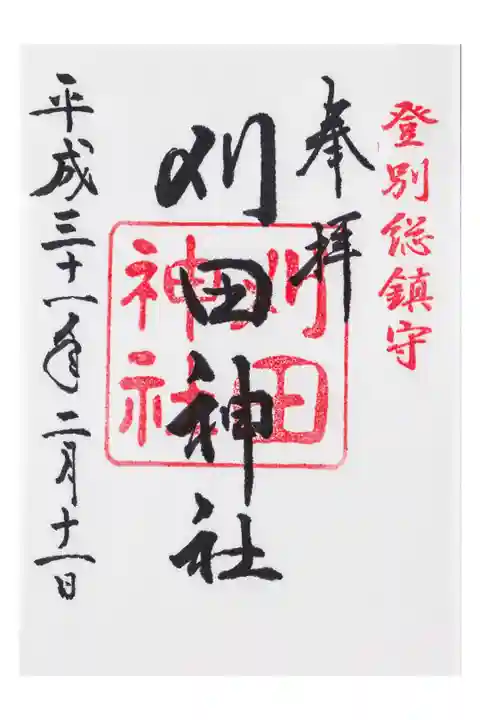 登別総鎮守
奉拝
刈田神社
刈田
神社
平成三十一年二月十一日